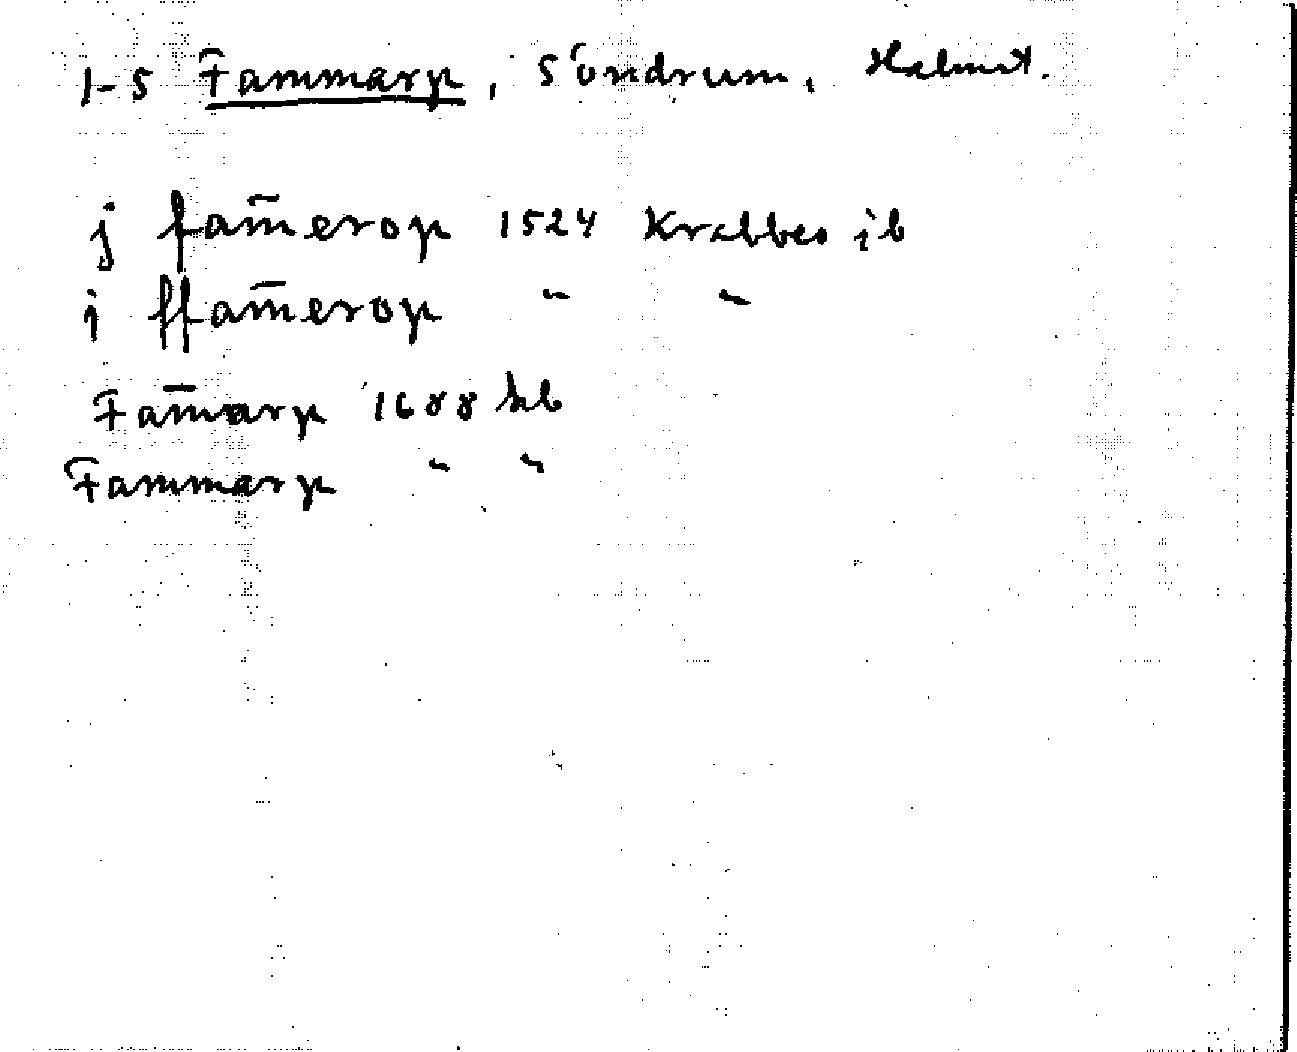 1-5 Fammarp, Söndrum, Halmst.
j fam̄erop 1524 Krabbes jb
j ffam̄erop " "
Fam̄arp 1688 kb
Fammarp " "